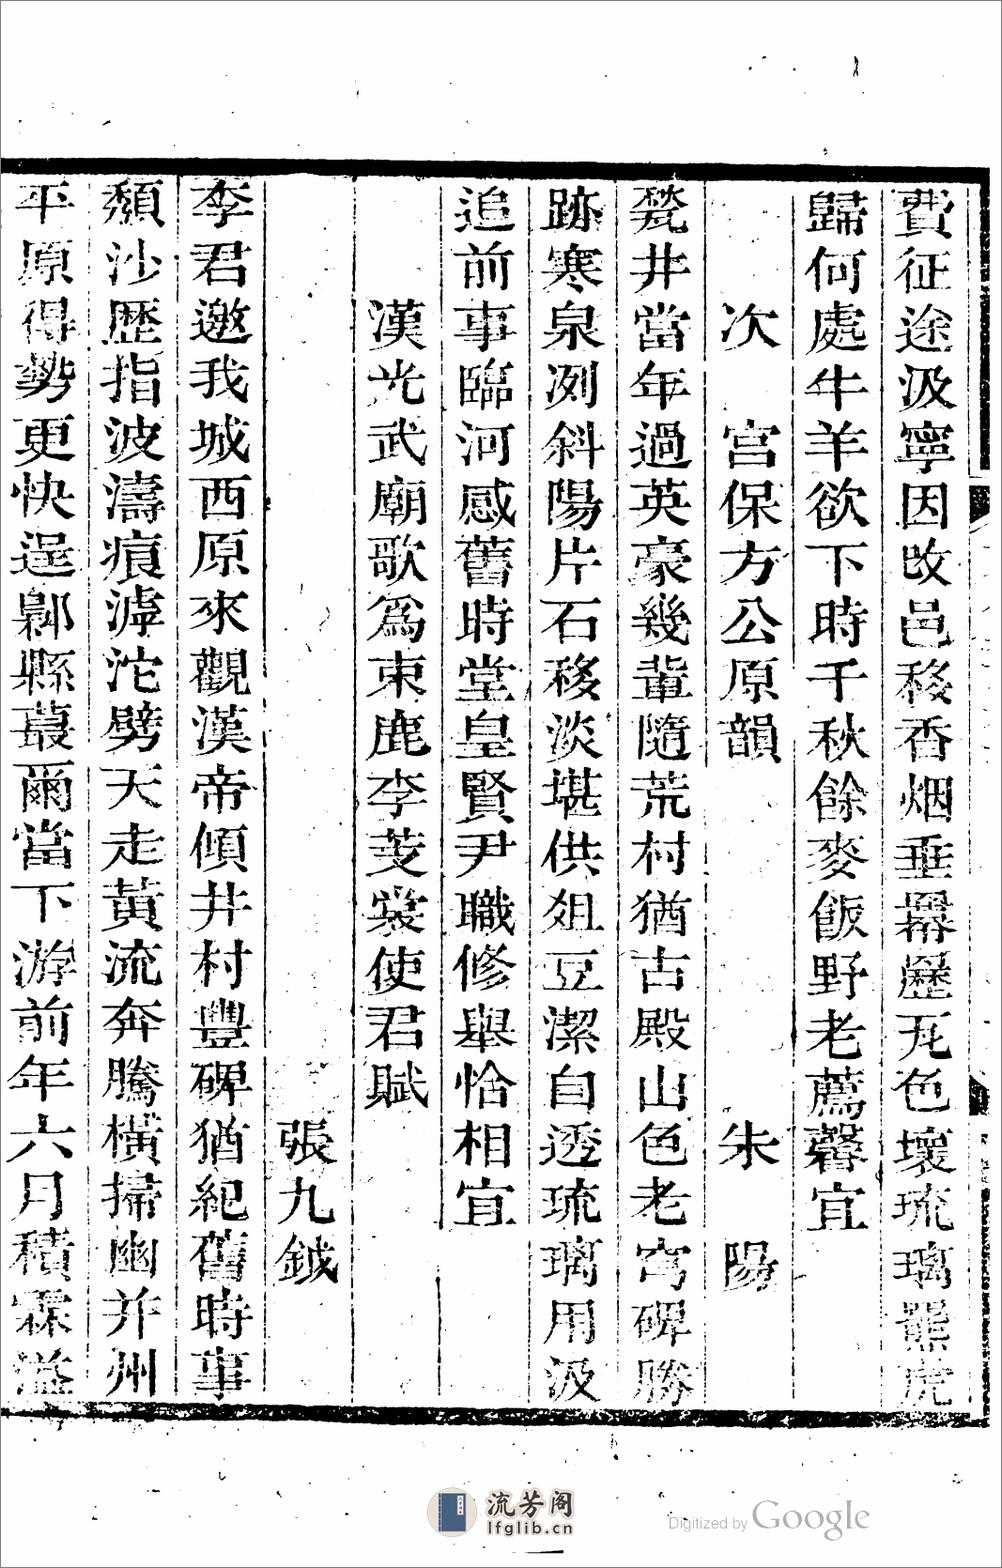 費征途汲寧因改邑移香烟垂羃歷瓦色壞琉璃羆虎
歸何處牛羊欲下時千秋餘麥飯野老薦馨宜
次 宮保方公原韻 朱 陽
甃井當年過英豪幾輩隨荒村猶古殿山色老穹碑勝
跡寒泉冽斜陽片石移淡堪供俎豆潔自透琉璃用汲
追前事臨河感舊時堂皇賢尹職修舉恰相宜
漢光武廟歌為束鹿李芰裳使君賦
張九鉞
李君邀我城西原來觀漢帝傾井村豐碑猶紀舊時事
頹沙歷指波濤痕滹沱劈天走黃流奔騰橫掃幽并州
平原得勢更快逞鄡縣蕞爾當下游前年六月積霖溢
流芳阁
lfglib.cn
Digitized by Google